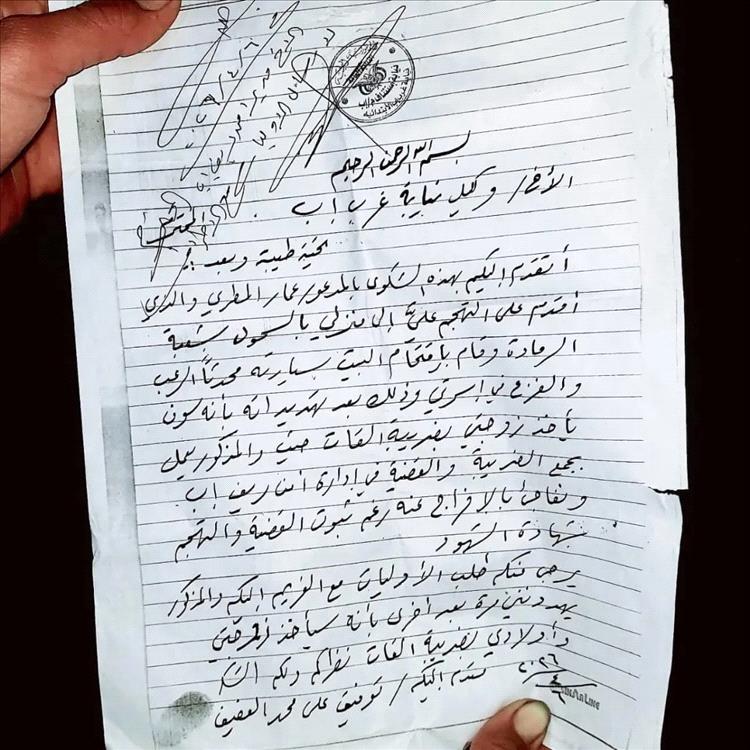 بسم الله الرحمن الرحيم
الأخ/ وكيل نيابة غرب إب
المحترم
تحية طيبة وبعد ::
أتقدم إليكم بهذه الشكوى بالمدعو/ عمار المطري والذي
أقدم على التهجم عليّ إلى منزلي بالسحول شعبة
الرمادة وقام باقتحام البيت بسيارته محدثاً الرعب
والفزع في أسرتي وذلك بعد تهديداته بأنه سوف
يأخذ زوجتي بضريبة القات حيث والمذكور يعمل
بجمع الضريبة والقضية في إدارة أمن ريف إب
ونفاجئ بالافراج عنه رغم ثبوت القضية والتهجم
بشهادة الشهود
يرجى منكم طلب الأوليات مع الغريم اليكم والمذكور
يهددني مرة بعد أخرى بأنه سيأخذ
وأولادي بضريبة القات نظراكم ولكم الشكر
مقدم إليكم/ توفيق علي محمد العفيف
٢٠٢٦